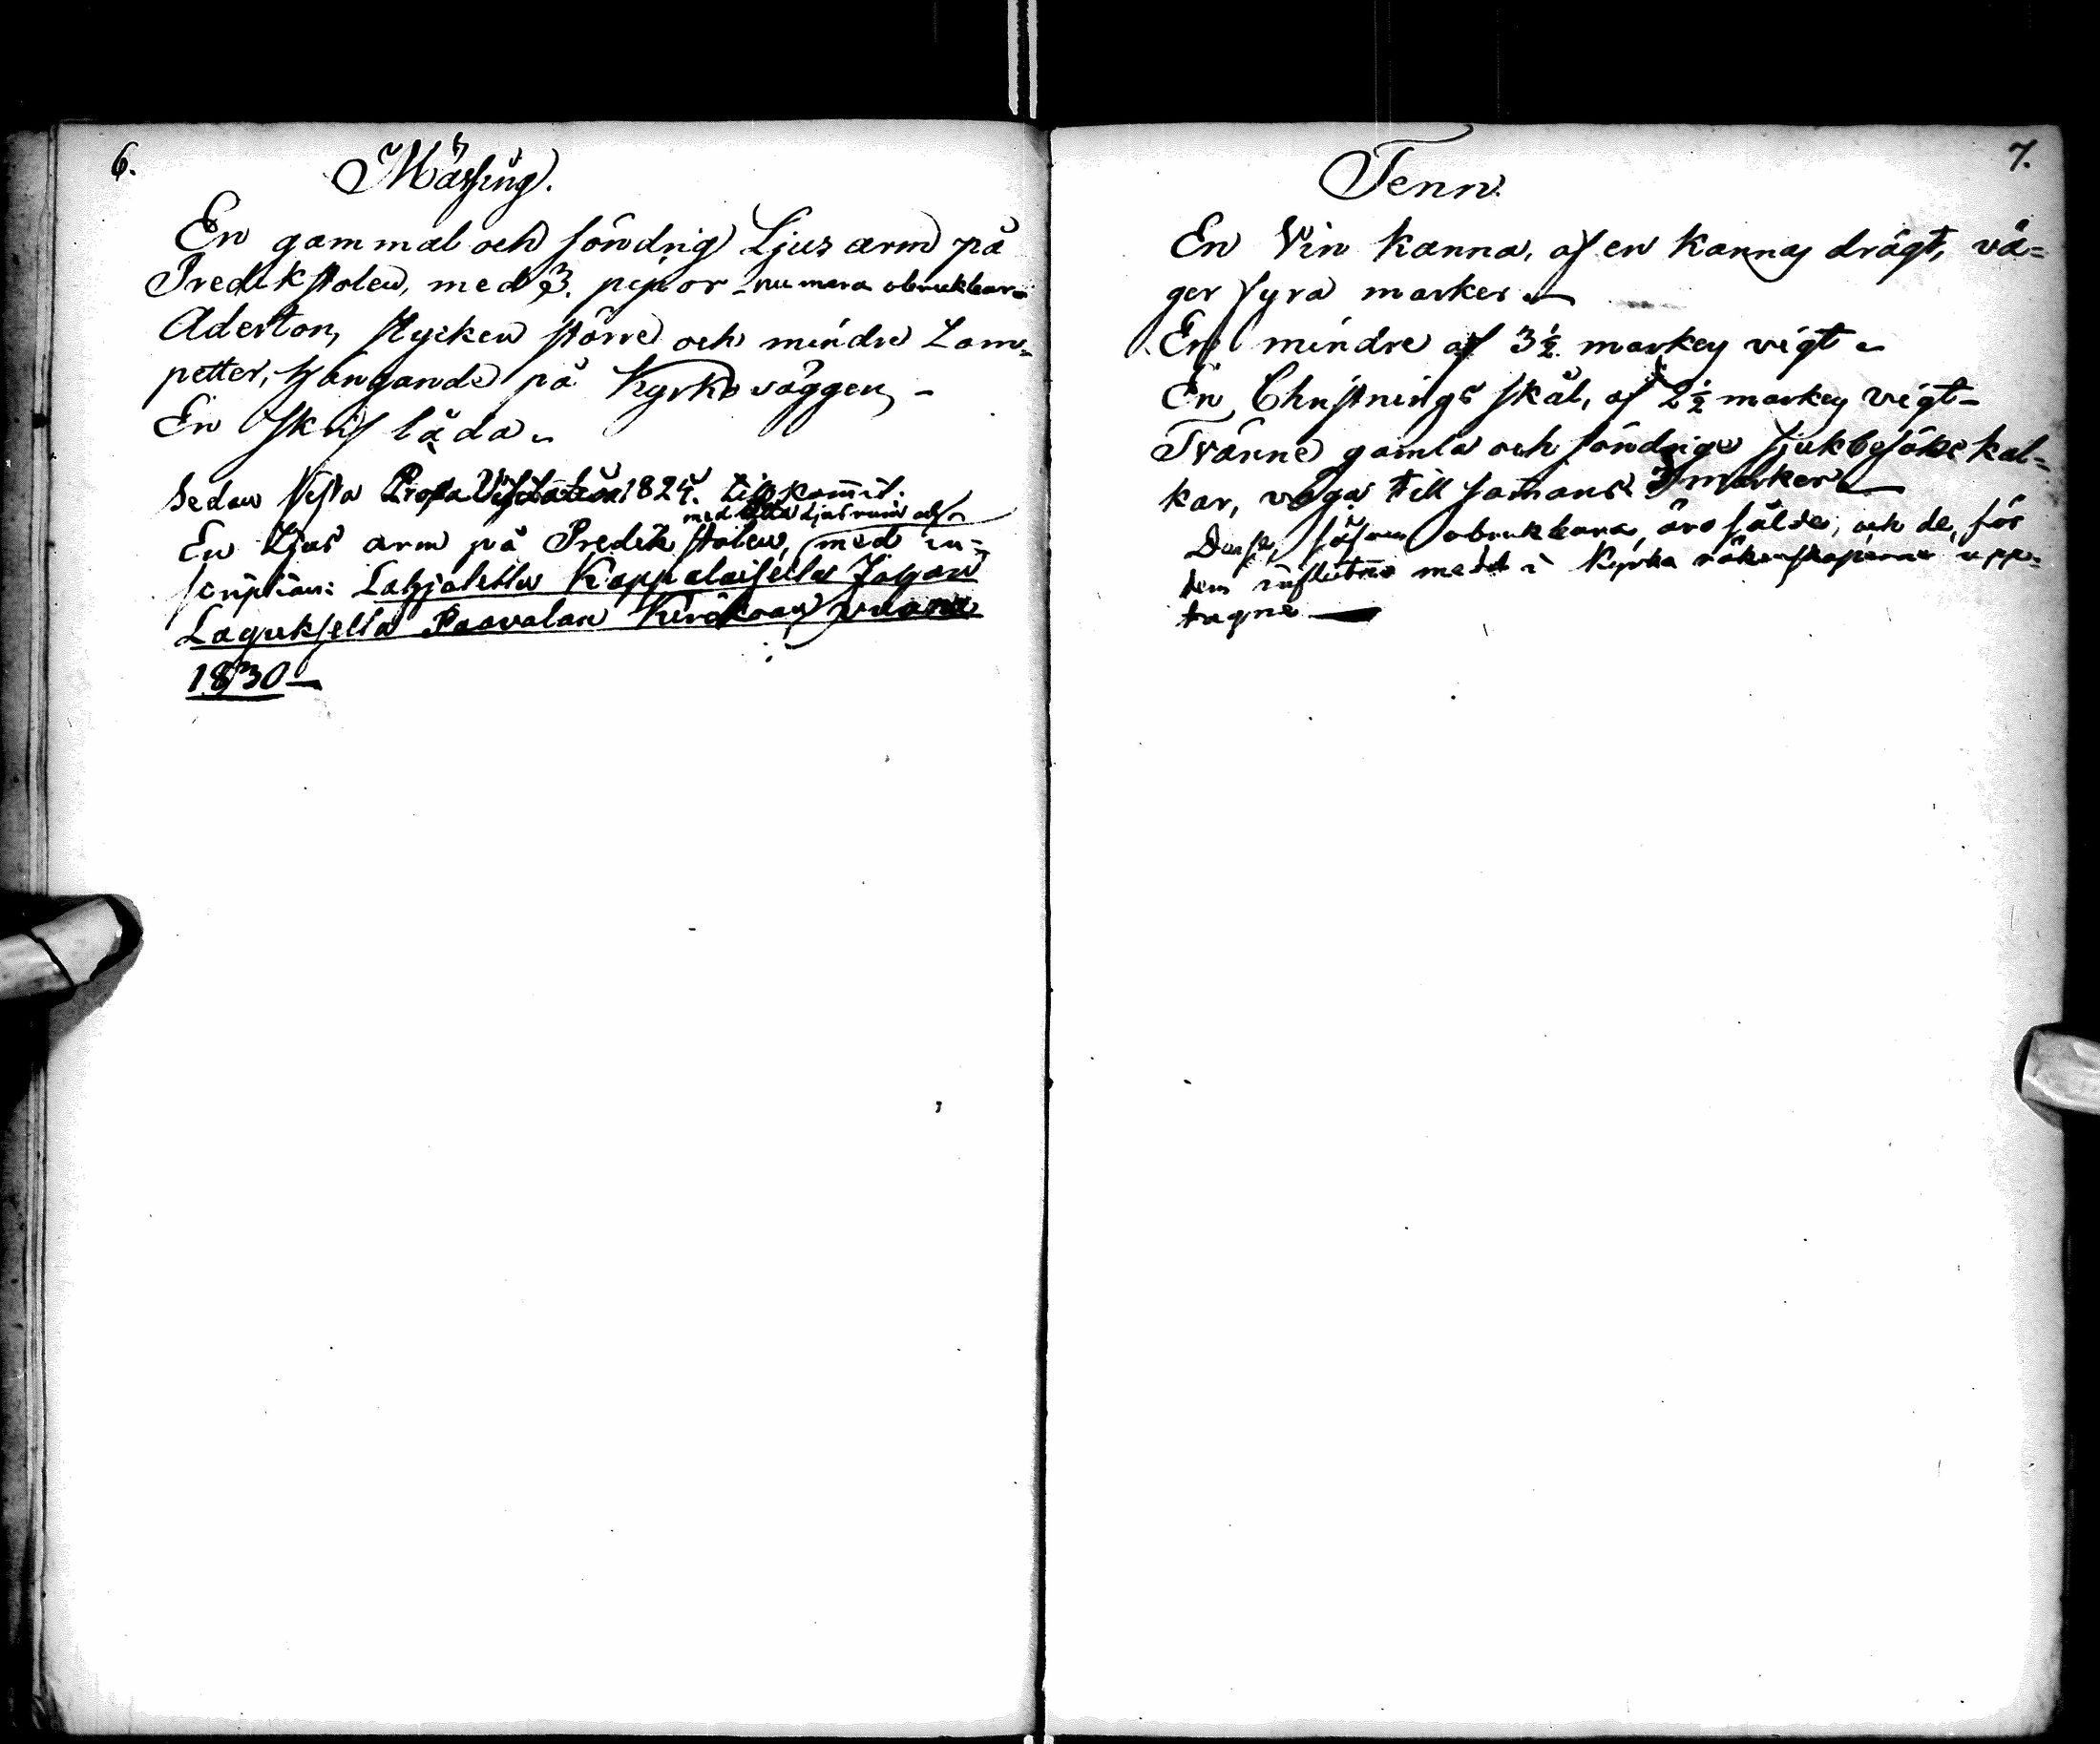 6.
Mässing.
En gammal och söndrig Ljus arm på
Predikstolen, med 3. pipor - nu mera obrukbar -
Aderton stycken större och mindre Lam-
petter, hängande på Kyrko väggen -
En Skrif låda -
Sedan sista Prosts Visitation 1824. tillkom̄it.
med åtta Ljus rum och
En Ljus arm på Predikstolen, med in-
scription: Lahjoitettu Kappalaiselta Johan
Lagukselta Paavolan Kirckoon vuonna
1830 -
7.
Tenn.
En Vin kanna, af en kannas drägt, vä-
ger fyra marker -
En mindre af 3 ½ markers vigt -
En Christnings skål, af 2 ½ markers vigt -
Tvänne gamla och söndriga sjukbesöks kal-
kar, väga till samans 3 marker -
Dessa, såsom obrukbara, äro sålde, och de för
dem influtne medel i Kyrko räkenskaperne upp-
tagne -